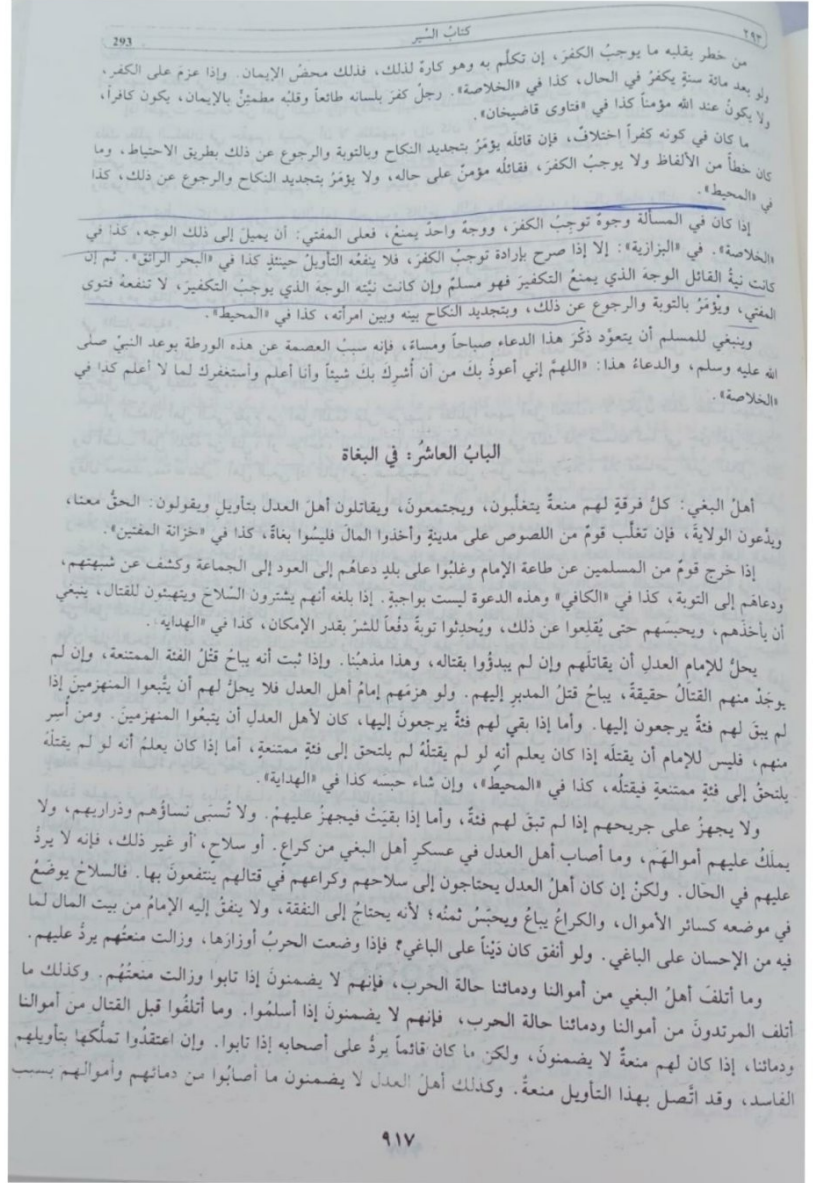 ٢٩٣
كتابُ السِّير
293
من خطر بقلبه ما يوجبُ الكفرَ، إن تكلَّم به وهو كارهٌ لذلك، فذلك محضُ الإيمان. وإذا عزمَ على الكفر،
ولو بعد مائة سنةٍ يكفرُ في الحال، كذا في «الخلاصة». رجلٌ كفرَ بلسانه طائعاً وقلبه مطمئنٌّ بالإيمان، يكون كافراً،
ولا يكونُ عند الله مؤمناً كذا في «فتاوى قاضيخان».
ما كان في كونه كفراً إختلافٌ، فإن قائلَه يؤمَرُ بتجديد النكاح وبالتوبة والرجوع عن ذلك بطريق الاحتياط، وما
كان خطأً من الألفاظ ولا يوجبُ الكفرَ، فقائلُه مؤمنٌ على حاله، ولا يؤمَرُ بتجديد النكاح والرجوع عن ذلك، كذا
في «المحيط».
إذا كان في المسألة وجوهٌ توجِبُ الكفرَ، ووجهٌ واحدٌ يمنعُ، فعلى المفتي: أن يميلَ إلى ذلك الوجه، كذا في
«الخلاصة». في «البزازية»: إلا إذا صرح بإرادة توجبُ الكفرَ، فلا ينفعُه التأويلُ حينئذٍ كذا في «البحر الرائق». ثم إن
كانت نيةُ القائل الوجهَ الذي يمنعُ التكفيرَ فهو مسلمٌ وإن كانت نيّته الوجهَ الذي يوجبُ التكفيرَ، لا تنفعهُ فتوى
المفتي، ويؤمَرُ بالتوبة والرجوع عن ذلك، وبتجديد النكاح بينه وبين امرأته، كذا في «المحيط».
وينبغي للمسلم أن يتعوَّد ذكْرَ هذا الدعاء صباحاً ومساءً، فإنه سببُ العصمة عن هذه الورطة بوعد النبيّ صلّى
الله عليه وسلم، والدعاءُ هذا: «اللهمَّ إني أعوذُ بكَ من أن أُشركَ بكَ شيئاً وأنا أعلم وأستغفرك لما لا أعلم كذا في
«الخلاصة».
البابُ العاشرُ: في البغاة
أهلُ البغي: كلُّ فرقةٍ لهم منعةٌ يتغلَّبون، ويجتمعونَ، ويقاتلون أهلَ العدل بتأويلٍ ويقولون: الحقُّ معنا،
ويدَّعون الولايةَ، فإن تغلَّب قومٌ من اللصوص على مدينةٍ وأخذوا المالَ فليسُوا بغاةً، كذا في «خزانة المفتين».
إذا خرج قومٌ من المسلمين عن طاعة الإمام وغلبُوا على بلدٍ دعاهُم إلى العود إلى الجماعة وكشف عن شبهتهم،
ودعاهُم إلى التوبة، كذا في «الكافي» وهذه الدعوة ليست بواجبةٍ. إذا بلغَه أنهم يشترون السِّلاحَ ويتهيئون للقتال، ينبغي
أن يأخذَهم، ويحبسَهم حتى يُقلِعوا عن ذلك، ويُحدِثوا توبةً دفْعاً للشرّ بقدر الإمكان، كذا في «الهداية».
يحلُّ للإمامِ العدلِ أن يقاتلَهم وإن لم يبدؤُوا بقتاله، وهذا مذهبُنا. وإذا ثبت أنه يباحُ قتلُ الفئة الممتنعة، وإن لم
يوجَدْ منهم القتالُ حقيقةً، يباحُ قتلُ المدبر إليهم. ولو هزمَهُم إمامُ أهل العدل فلا يحلُّ لهم أن يتَّبعوا المنهزمينَ إذا
لم يبقَ لهم فئةٌ يرجعون إليها. وأما إذا بقي لهم فئةٌ يرجعونَ إليها، كان لأهل العدلِ أن يتبعُوا المنهزمينَ. ومن أُسِر
منهم، فليس للإمام أن يقتلَه إذا كان يعلم أنه لو لم يقتلْهُ لم يلتحق إلى فئةٍ ممتنعةٍ، أما إذا كان يعلمُ أنه لو لم يقتلْهُ
يلتحقُ إلى فئةٍ ممتنعةٍ فيقتلُه، كذا في «المحيط»، وإن شاء حبسَه كذا في «الهداية».
ولا يجهزُ على جريحهم إذا لم تبقَ لهم فئةٌ، وأما إذا بقيتْ فيجهزُ عليهمْ. ولا تُسبَى نساؤُهم وذراريهم، ولا
يملَكُ عليهم أموالهَم، وما أصاب أهل العدل في عسكرِ أهل البغي من كراعٍ. أو سلاحٍ، أو غير ذلك، فإنه لا يردُّ
عليهم في الحَال. ولكنْ إن كان أهلُ العدل يحتاجون إلى سلاحهم وكراعهم في قتالهم ينتفعونَ بها. فالسلاحُ يوضَعُ
في موضعه كسائر الأموال، والكراعُ يباعُ ويحبَسُ ثمنُه؛ لأنه يحتاجُ إلى النفقة، ولا ينفقُ إليه الإمامُ من بيت المال لما
فيه من الإحسان على الباغي. ولو أنفق كان دَيْناً على الباغي؟ فإذا وضعت الحربُ أوزارَها، وزالت منعتُهم يردُّ عليهم.
وما أتلفَ أهلُ البغي من أموالنا ودمائنا حالة الحرب، فإنهم لا يضمنونَ إذا تابوا وزالت منعتُهُم. وكذلك ما
أتلف المرتدونَ من أموالنا ودمائنا حالةَ الحرب، فإنهم لا يضمنونَ إذا أسلمُوا. وما أتلفُوا قبل القتال من أموالنا
ودمائنا، إذا كان لهم منعةٌ لا يضمنونَ، ولكن ما كان قائماً يردُّ على أصحابه إذا تابوا. وإن اعتقدُوا تملُّكها بتأويلهم
الفاسد، وقد اتَّصل بهذا التأويل منعةٌ. وكذلك أهلُ العدل لا يضمنون ما أصابُوا من دمائهم وأموالهم بسبب
٩١٧